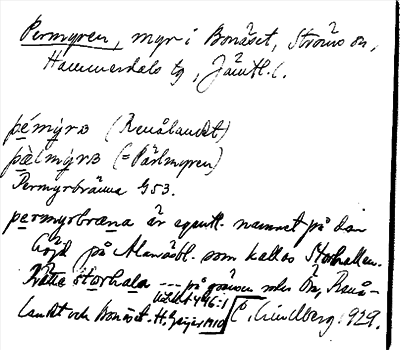 Permyren, myr i Bonäset, Ströms sn,
Hammerdals tg, Jämtl. l.
pèmy̆rɜ (Renålandet)
pàlmy̆rɜ (= Pärlmyren)
Permyrbränna G53.
permyrbræna är egentl. namnet på den
höjd på Alanäsbl. som kallas Storhallen.
Rätte storhala --- på gränsen mln Ön, Renå-
landet och Bonäset. H. Geijer 1910 C. Lindberg 1929.